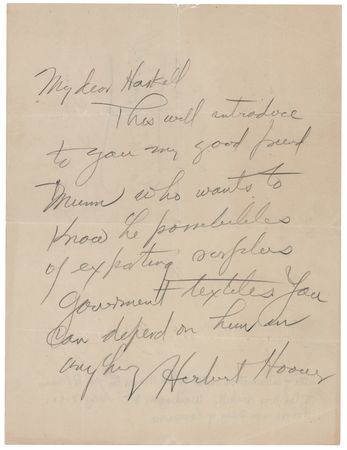 My dear Haskell
This will introduce
to you my good friend
Munn who wants to
Know he possibilities
of exporting surplus
Government textiles You
can depend on him on
anything Herbert Hoover